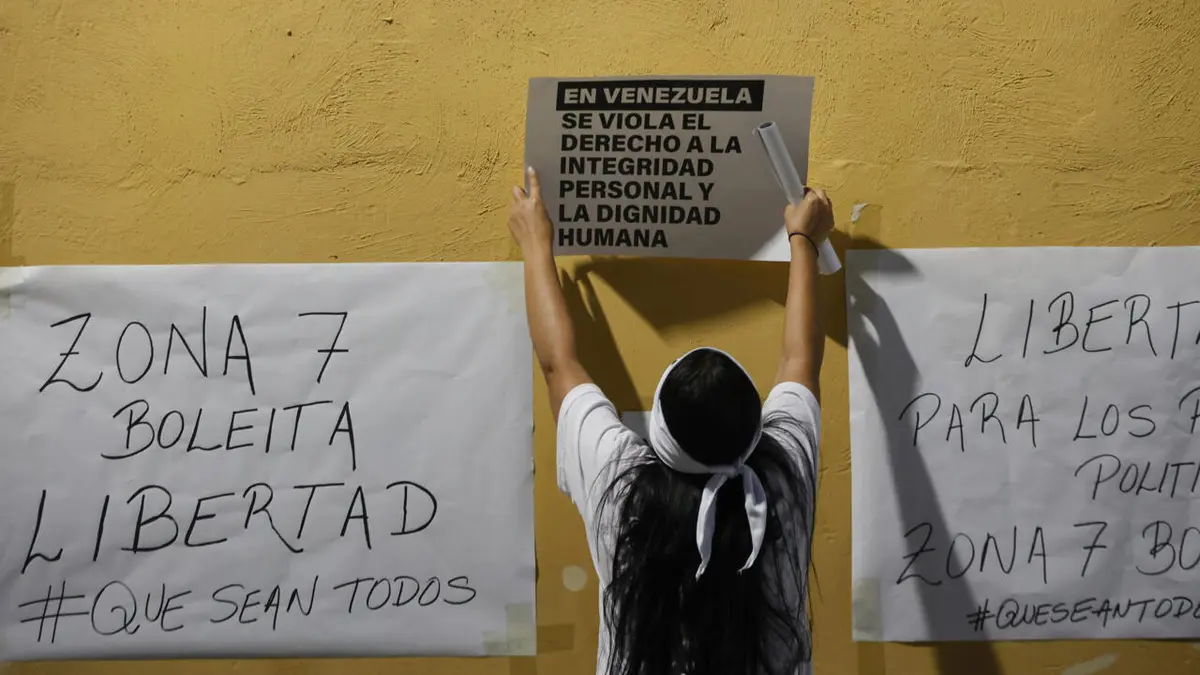 EN VENEZUELA
SE VIOLA EL
DERECHO A LA
INTEGRIDAD
PERSONAL Y
LA DIGNIDAD
HUMANA
ZONA 7
BOLEITA
LIBERTAD
#QUE SEAN TODOS
PARA LOS
ZONA 7
#QUESEANTODO